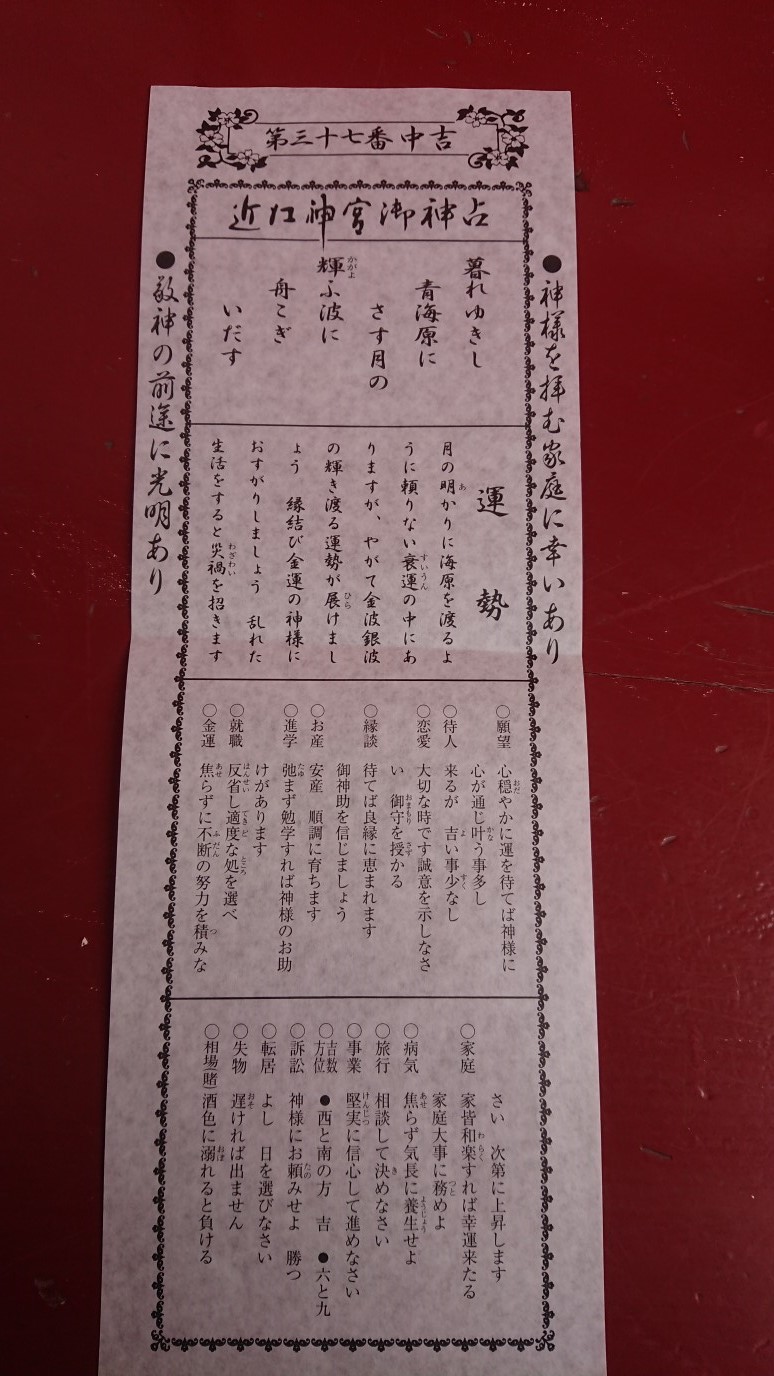 第三十七番中吉
近江神宮御神占
●神様を拝む家庭に幸いあり
暮れゆきし
青海原に
さす月の
輝ふ波に
かがよ
舟こぎ
いだす
●敬神の前途に光明あり
運勢
月の明かりに海原を渡るよ
あ
うに頼りない衰運の中にあ
すいうん
りますが、やがて金波銀波
の輝き渡る運勢が展けまし
ひら
ょう 縁結び金運の神様に
おすがりしましょう 乱れた
生活をすると災禍を招きます
わざわい
○願望 心穏やかに運を待てば神様に
おだ
心が通じ叶う事多し
かな
○待人 来るが 吉い事少なし
よ すく
○恋愛 大切な時です誠意を示しなさ
い 御守を授かる
おまもり さず
○縁談 待てば良縁に恵まれます
御神助を信じましょう
○お産 安産 順調に育ちます
○進学 弛まず勉学すれば神様のお助
たゆ
けがあります
○就職 反省し適度な処を選べ
はんせい てきど ところ
○金運 焦らずに不断の努力を積みな
あせ ふだん つ
さい 次第に上昇します
○家庭 家皆和楽すれば幸運来たる
わらく
家庭大事に務めよ
つと
○病気 焦らず気長に養生せよ
あせ ようじょう
○旅行 相談して決めなさい
き
○事業 堅実に信心して進めなさい
けんじつ
○吉数方位 ●西と南の方 吉 ●六と九
○訴訟 神様にお頼みせよ 勝つ
たの
○転居 よし 日を選びなさい
○失物 遅ければ出ません
おそ
○相場(賭) 酒色に溺れると負ける
おぼ